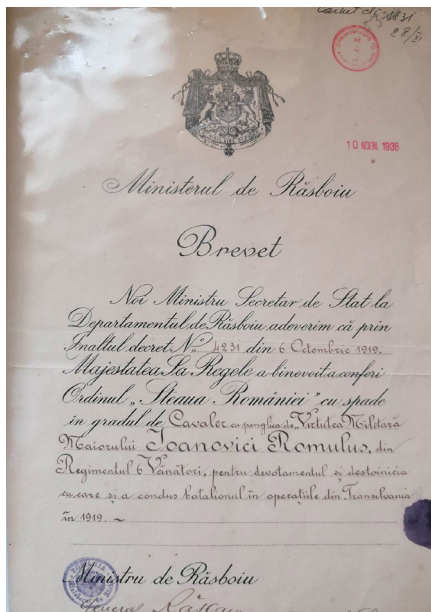 Carnet
28/XI
10 NOEM. 1936
Ministerul de Răsboiu
Brevet
Noi Ministru Secretar de Stat la
Departamentul de Răsboiu adeverim că prin
Înaltul decret No. 4231 din 6 Octombrie 1919.
Majestatea Sa Regele a binevoit a conferi
Ordinul „Steaua României" cu spade
în gradul de Cavaler cu panglica de „Virtutea Militară
Maiorului Ioanovici Romulus, din
Regimentul 6 Vânători, pentru devotamentul și destoinicia
cu care și a condus batalionul în operațiile din Transilvania
în 1919. ~
Ministru de Răsboiu
General Rășcanu